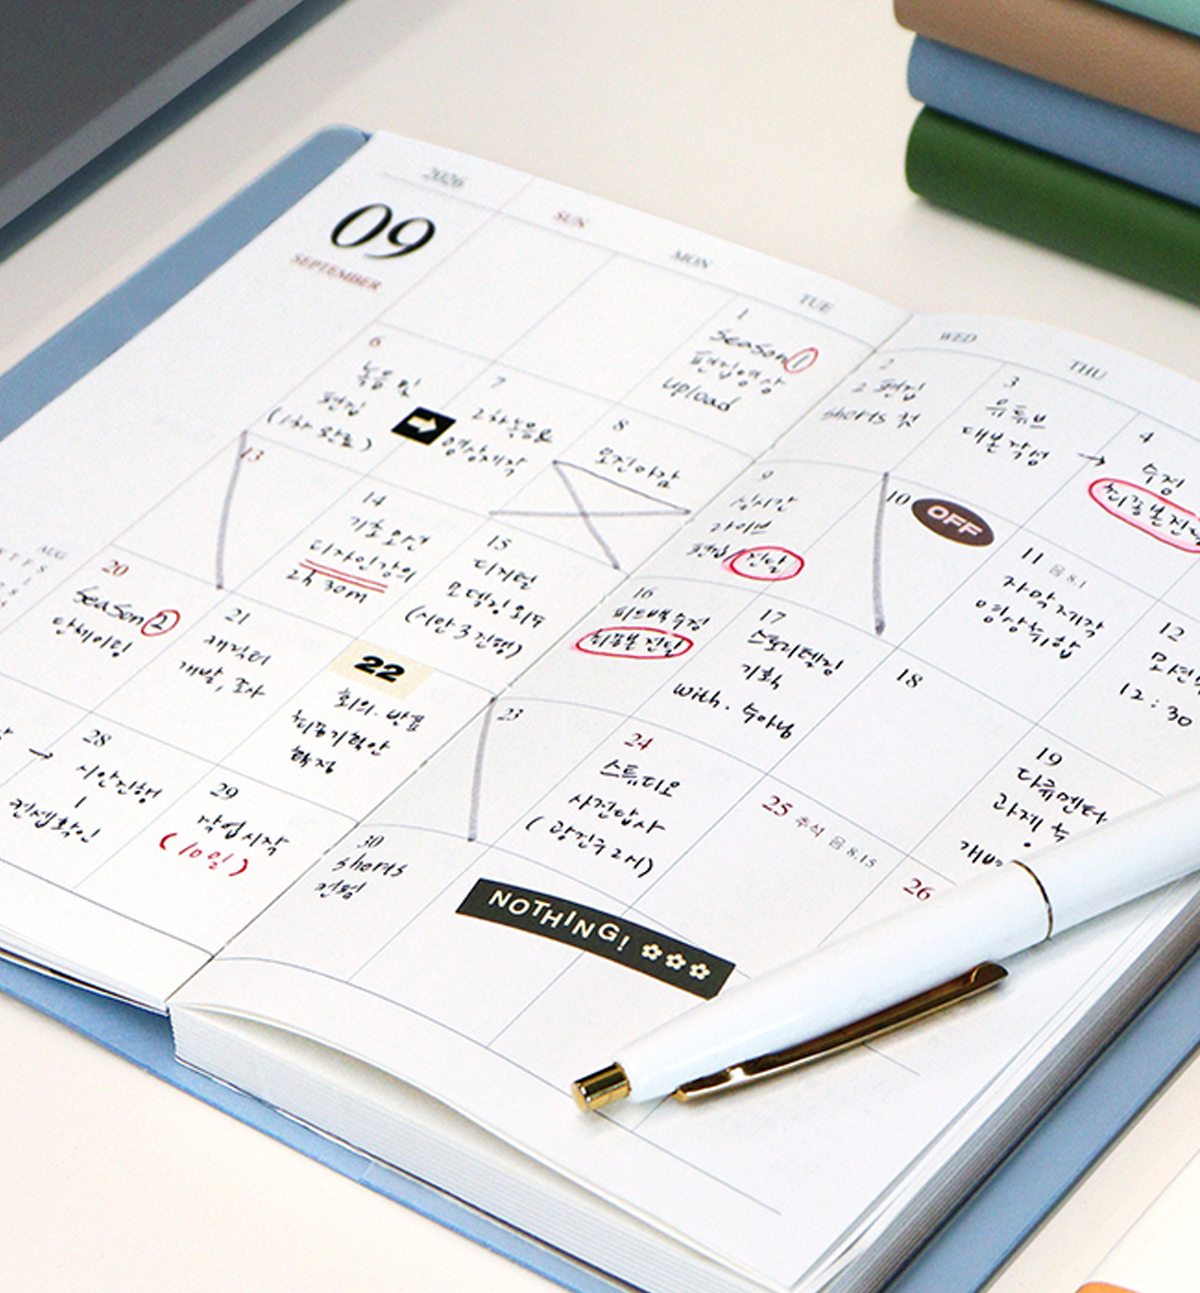 2026
09
SEPTEMBER
SUN
MON
TUE
WED
THU
1
Season 1
편집영상
upload
2
2 편집
shorts 컷
3
유튜브
대본작성
→
4
수정
최종본전달
6
녹음 및
편집
(1차 완료)
7
2차녹음&
영상제작
8
오전마감
9
실시간
라이브
편집 전달
10
OFF
11 음 8.1
자막제작
영상취합
12
모션
12:30
13
14
기초모션
디자인강의
2시 30m
15
디지털
모델링 외주
(시안 3 진행)
16
피드백수정
최종본 전달
17
스토리텔링
기획
with. 수아님
18
19
다큐멘터
과제
20
Season 2
21
캐릭터
개발, 조사
22
회의. 발표
최종기획안
확정
23
24
스튜디오
사전답사
(광진구 2시)
25 추석 음 8.15
26
→
28
시안진행
컨셉확인
29
작업시작
(10일)
30
shorts
편집
NOTHING!
AUG